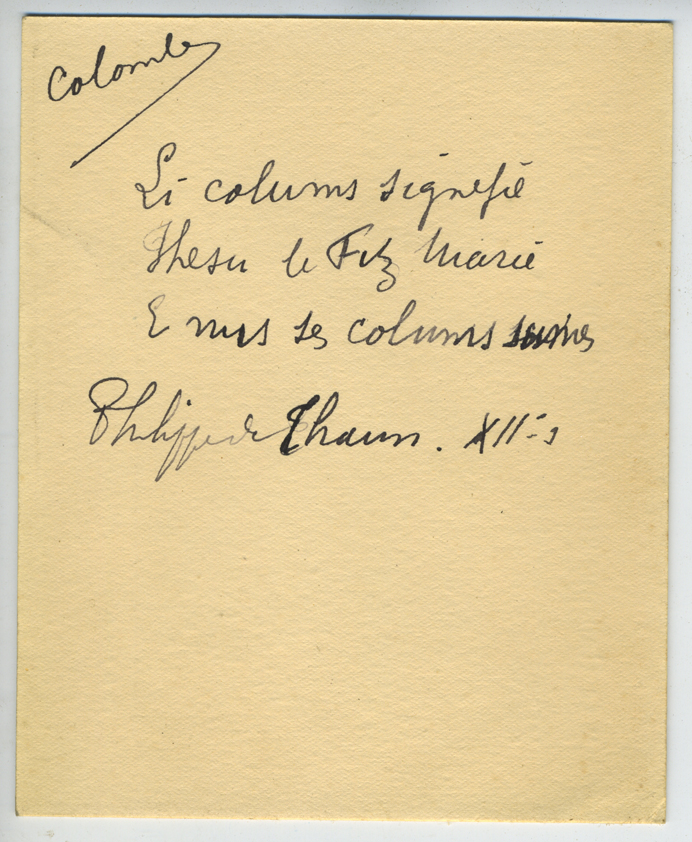 Colombe
Li colums signefie
Jhesu le Fiz Marie
E nus ses colums sumes
Philippe de Thaun. XIIe s